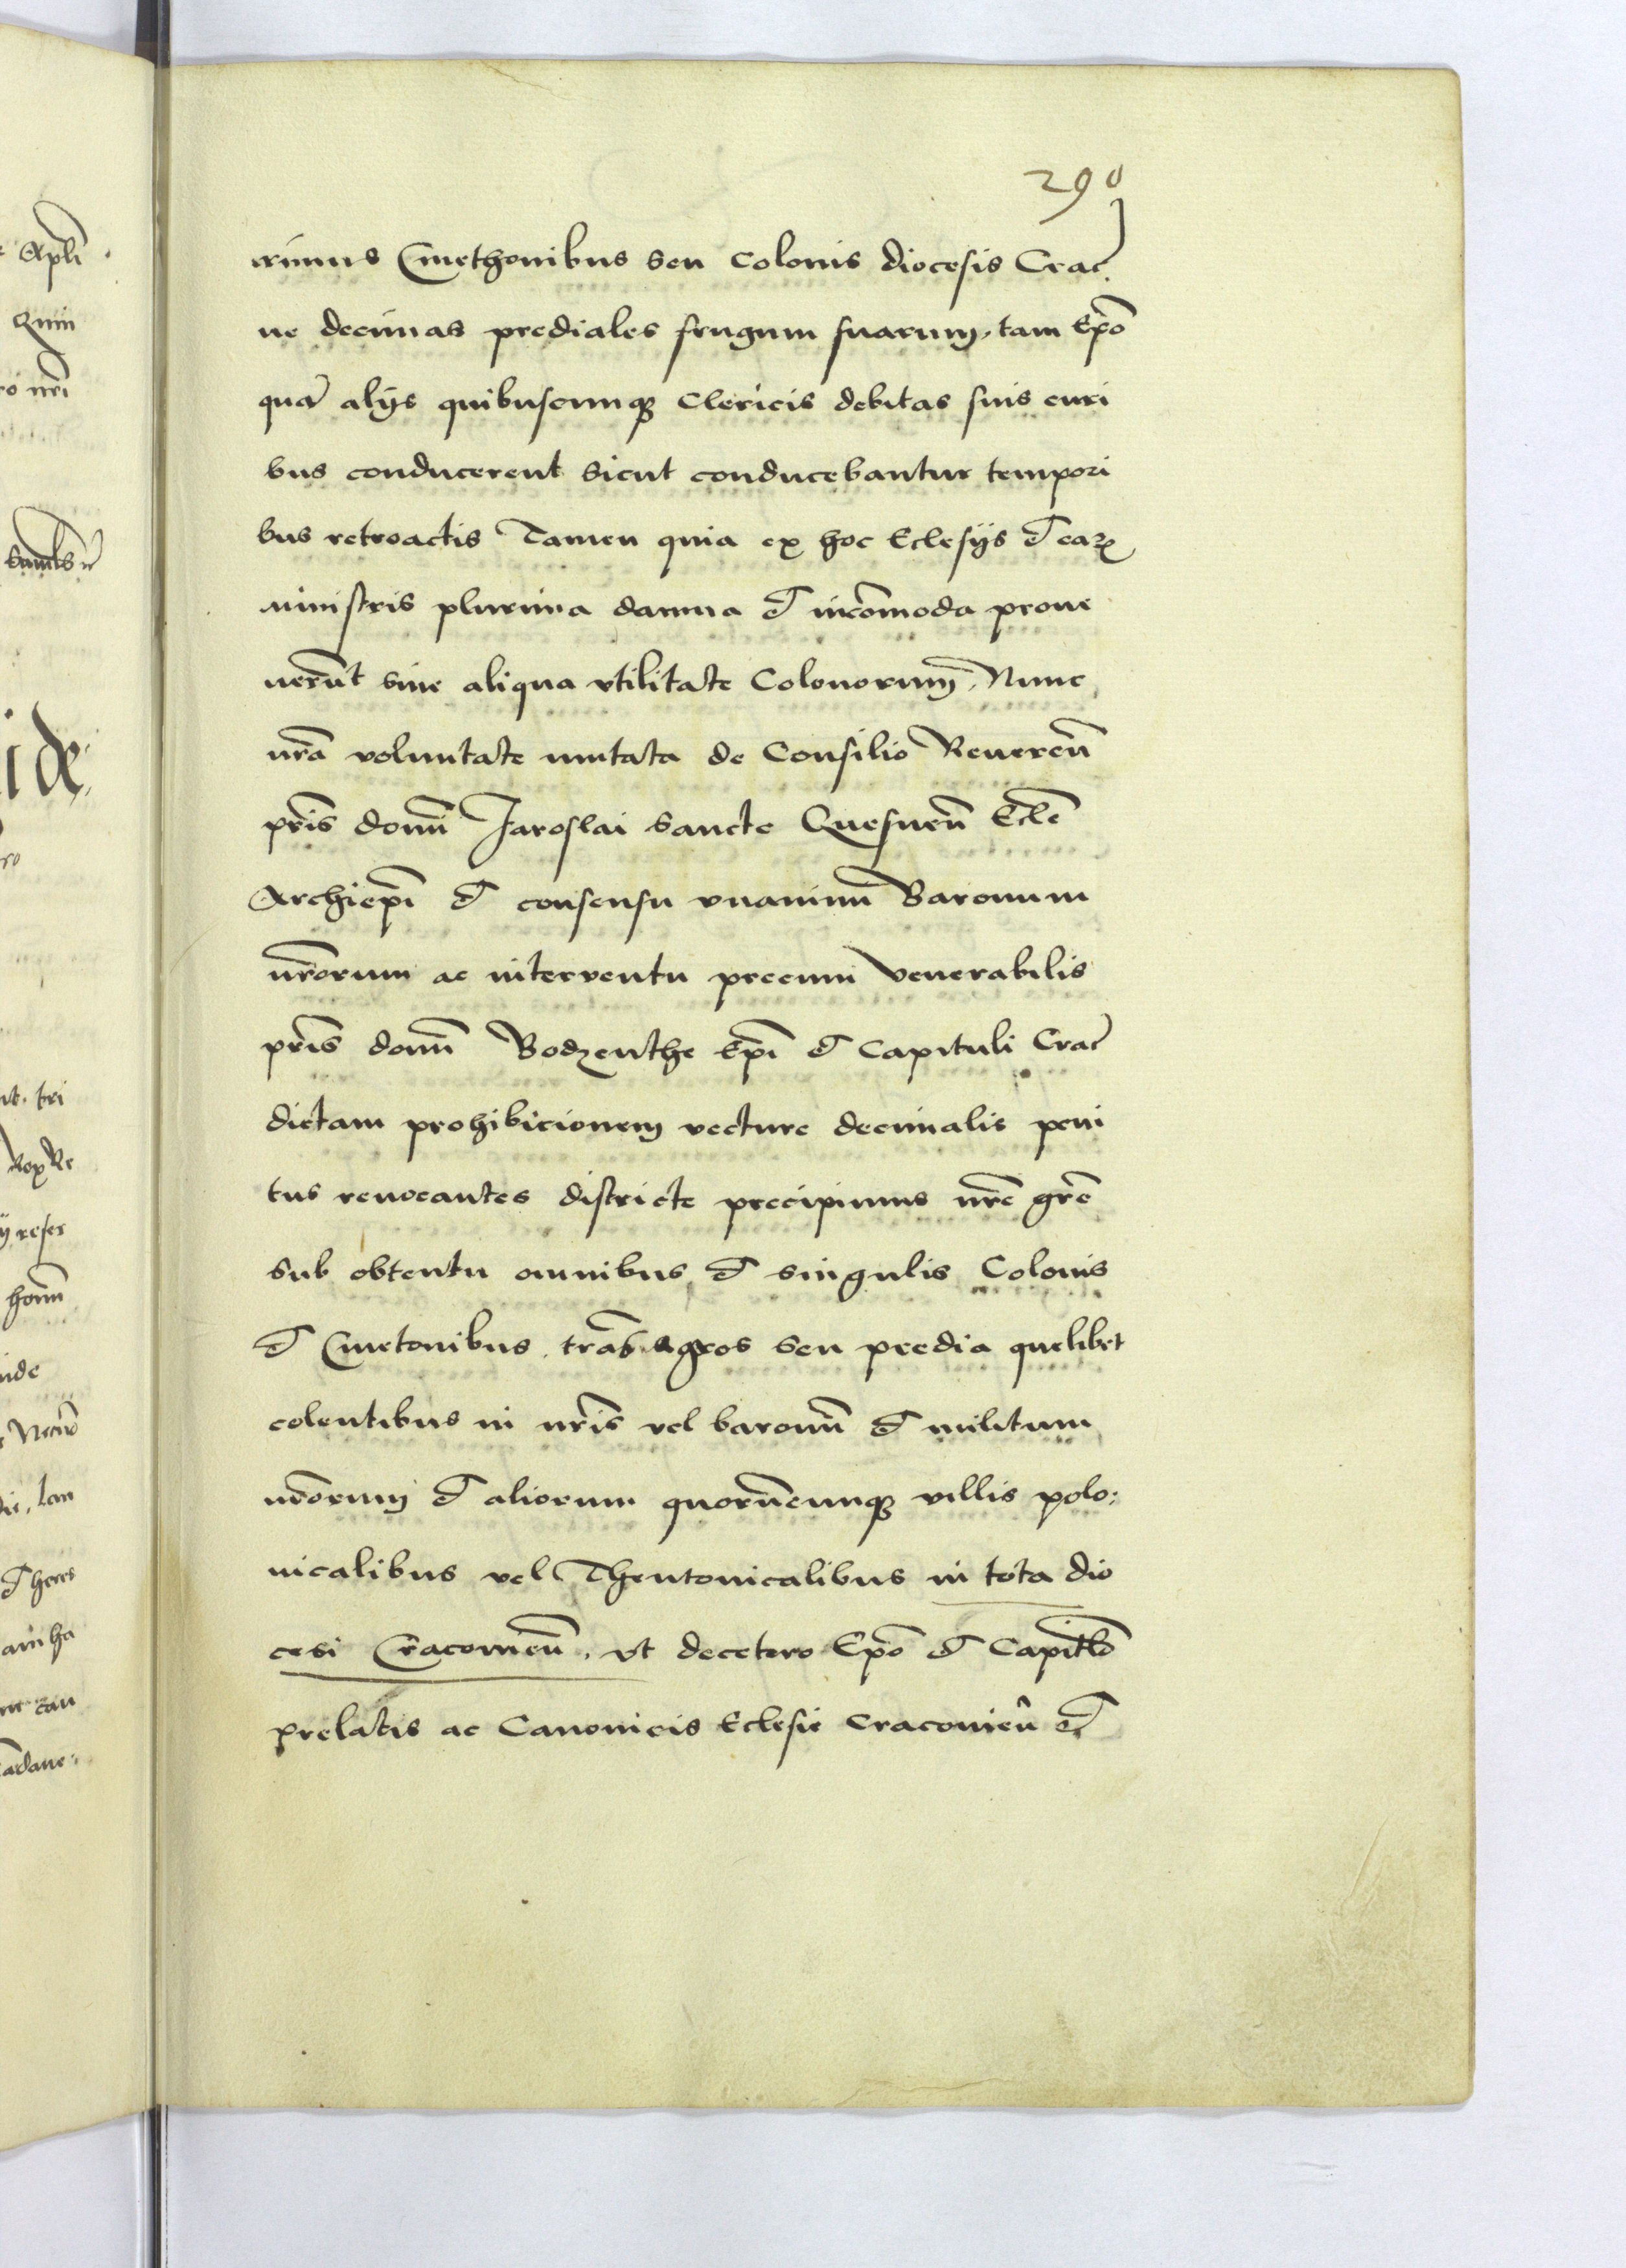 290
rimus Cmethonibus seu colonis diocesis Crac̄
ne decimas prediales frugum suarum, tam Ep̄o
quā alijs quibuscunq3 Clericis debitas suis curi
bus conducerent sicut conducebantur tempori
bus retroactis Tamen quia ex hoc Eclesijs et earꝝ
ministris plurima damna et incōmoda proue
nerūt sine aliqua vtilitate Colonorum, Nunc
nr̄a voluntate mutata de Consilio Reuereñ
pr̄is domī Jaroslai sancte Gnesneñ Ecl̄e
Archiep̄i et consensu vnanimi Baronum
nr̄orum ac interventu precum Venerabilis
pr̄is domī Bodzenthe Ep̄i et Capituli Crac̄
dictam prohibicionem vecture decimalis peni
tus reuocantes districte precipimus nr̄e gr̄e
sub obtentu omnibus et singulis Colonis
et Cmetonibus, trās agros seu predia quelibet
colentibus in nr̄is vel baronū et militum
nr̄orum et aliorum quorūcunq3 villis polo:
nicalibus vel Theutonicalibus in tota dio
cesi Cracouieñ, vt decetero Ep̄o et Capitl̄o
prelatis ac Canonicis Eclesie Cracouieñ et